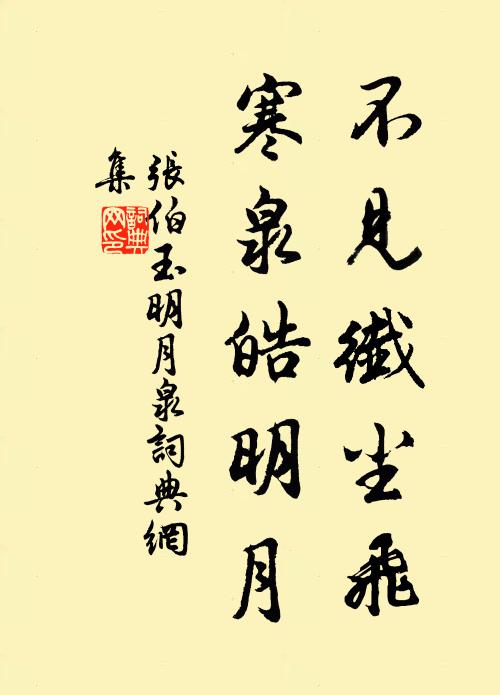 不見纖尘飛
寒泉皓明月
張伯玉明月泉詞典網
集
詞典
网印